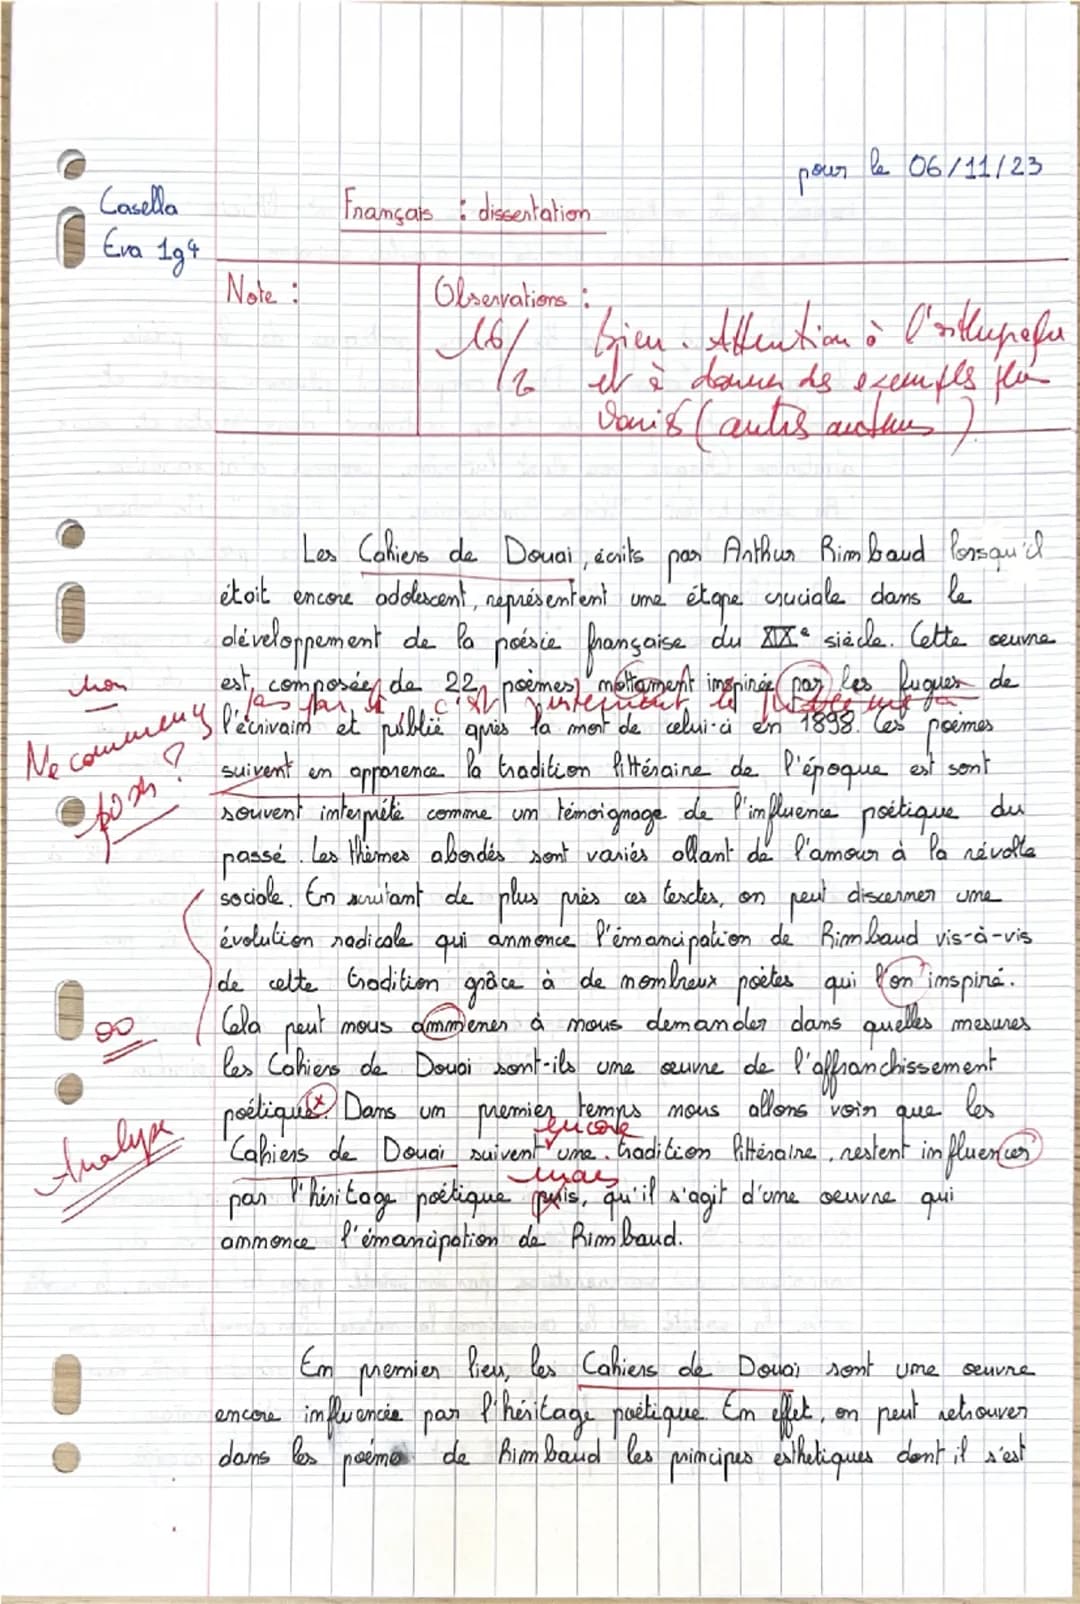 pour le 06/11/23
Casella
Eva 1g4
Français : dissertation
Note :
Observations :
16/
Bien. Attention à l'orthographe
et à donner des exemples plus
variés (autres auteurs)
Les Cahiers de Douai, écrits par Arthur Rimbaud lorsqu'il
étoit encore adolescent, représentent une étape cruciale dans le
développement de la poésie française du XIXe siècle. Cette oeuvre
non
est composée de 22 poèmes mottament inspirée par les fugues de
pas par
c'est
Ne commencez
l'écrivain et publié après la mort de celui-ci en 1898. Ces poèmes
pas ?
suivent en apparence la tradition littéraire de l'époque est sont
souvent interprété comme un témoignage de l'influence poétique du
passé. Les thèmes abordés sont variés allant de l'amour à la révolte
sociale. En scrutant de plus près ces textes, on peut discerner une
évolution radicale qui annonce l'émancipation de Rimbaud vis-à-vis
de cette tradition grâce à de nombreux poètes qui l'on inspiré.
Cela peut nous ammener à nous demander dans quelles mesures
les Cahiers de Douai sont-ils une oeuvre de l'affranchissement
poétique. Dans un premier temps nous allons voir que les
encore
Analyse
Cahiers de Douai suivent une tradition littéraire, restent influencer
mais
par l'héritage poétique puis, qu'il s'agit d'une oeuvre qui
annonce l'émancipation de Rimbaud.
En premier lieu, les Cahiers de Douai sont une oeuvre
encore influencée par l'héritage poétique. En effet, on peut retrouver
dans les poème de Rimbaud les principes esthetiques dont il s'est